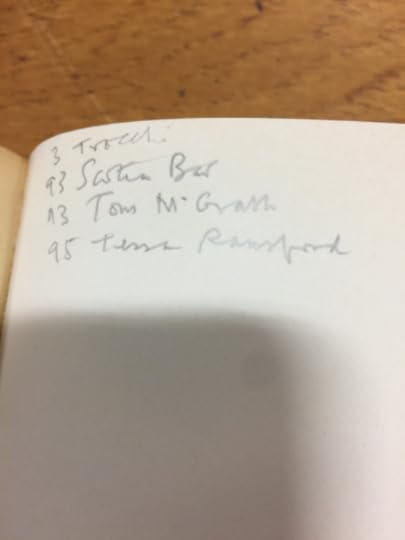 3 Trocchi
93 Scotia Bar
13 Tom McGrath
95 Tessa Ransford